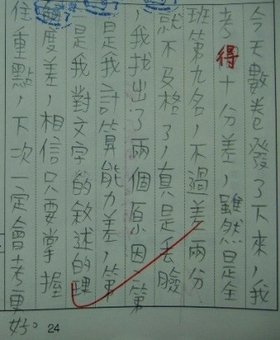 今天數卷發了下來，我
考得十分差，雖然是全
班第九名，不過差兩分
就不及格了，真是丟臉
，我找出了兩個原因，第
一是我計算能力差，第
二是我對文字的敘述的理
解度差，相信只要掌握
住重點，下次一定會考更
好。
24